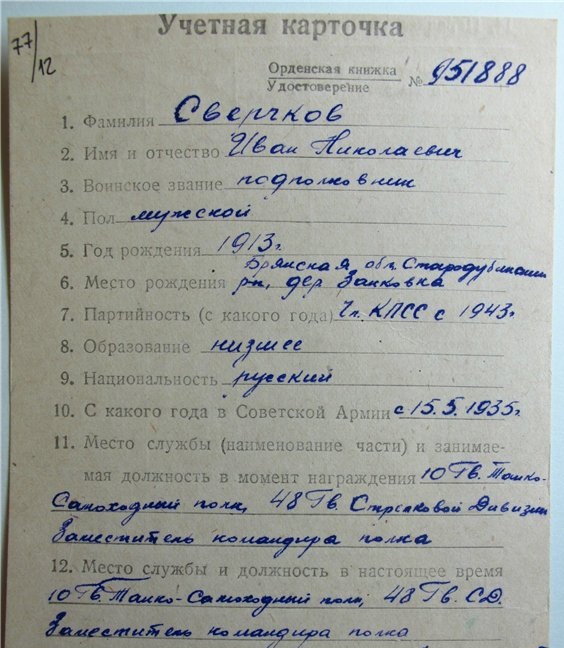 77/12
Учетная карточка
Орденская книжка
Удостоверение № 951888
1. Фамилия Сверчков
2. Имя и отчество Иван Николаевич
3. Воинское звание подполковник
4. Пол мужской
5. Год рождения 1913г.
Брянская обл. Стародубский
6. Место рождения р-н, дер Занковка
7. Партийность (с какого года) Чл. КПСС с 1943г.
8. Образование низшее
9. Национальность русский
10. С какого года в Советской Армии с 15.5.1935г.
11. Место службы (наименование части) и занимае-
мая должность в момент награждения 10 Гв. Танко-
Самоходный полк, 48 Гв. Стрелковой Дивизии
Заместитель командира полка
12. Место службы и должность в настоящее время
10 Гв. Танко-Самоходный полк, 48 Гв. СД.
Заместитель командира полка